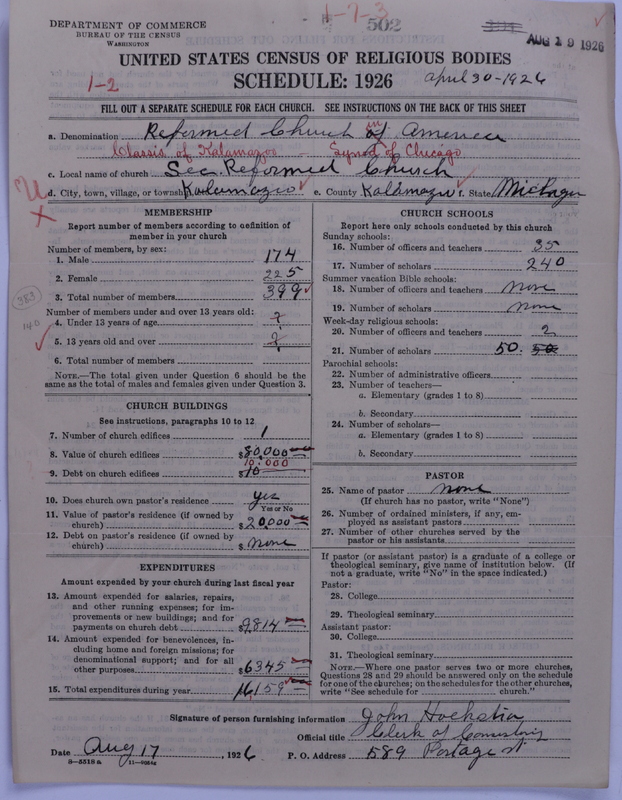 DEPARTMENT OF COMMERCE
BUREAU OF THE CENSUS
WASHINGTON
1-7-3
502
AUG 19 1926
UNITED STATES CENSUS OF RELIGIOUS BODIES
SCHEDULE: 1926
April 30-1926
1-2
FILL OUT A SEPARATE SCHEDULE FOR EACH CHURCH. SEE INSTRUCTIONS ON THE BACK OF THIS SHEET
a. Denomination Reformed Church of in America
Classis of Kalamazoo Synod of Chicago
c. Local name of church Sec. Reformed Church
d. City, town, village, or township Kalamazoo e. County Kalamazoo f. State Michigan
MEMBERSHIP
Report number of members according to definition of member in your church
Number of members, by sex:
1. Male 174
2. Female 225
3. Total number of members 399
Number of members under and over 13 years old:
4. Under 13 years of age ?
5. 13 years old and over ?
6. Total number of members
NOTE.—The total given under Question 6 should be the
same as the total of males and females given under Question 3.
383
140
CHURCH BUILDINGS
See instructions, paragraphs 10 to 12
7. Number of church edifices 1
8. Value of church edifices $80,000
10,000
9. Debt on church edifices $10
10. Does church own pastor's residence yes
Yes or No
11. Value of pastor's residence (if owned by
church) $20,000
12. Debt on pastor's residence (if owned by
church) $ None
EXPENDITURES
Amount expended by your church during last fiscal year
13. Amount expended for salaries, repairs,
and other running expenses; for im-
provements or new buildings; and for
payments on church debt $9814
14. Amount expended for benevolences, in-
cluding home and foreign missions; for
denominational support; and for all
other purposes $6345
15. Total expenditures during year 16,159
CHURCH SCHOOLS
Report here only schools conducted by this church
Sunday schools:
16. Number of officers and teachers 35
17. Number of scholars 240
Summer vacation Bible schools:
18. Number of officers and teachers none
19. Number of scholars none
Week-day religious schools:
20. Number of officers and teachers 2
21. Number of scholars 50. 50
Parochial schools:
22. Number of administrative officers
23. Number of teachers—
a. Elementary (grades 1 to 8)
b. Secondary
24. Number of scholars—
a. Elementary (grades 1 to 8)
b. Secondary
PASTOR
25. Name of pastor none
(If church has no pastor, write "None")
26. Number of ordained ministers, if any, em-
ployed as assistant pastors
27. Number of other churches served by the
pastor or his assistants
If pastor (or assistant pastor) is a graduate of a college or
theological seminary, give name of institution below. (If
not a graduate, write "No" in the space indicated.)
Pastor:
28. College
29. Theological seminary
Assistant pastor:
30. College
31. Theological seminary
NOTE.—Where one pastor serves two or more churches,
Questions 28 and 29 should be answered only on the schedule
for one of the churches; on the schedules for the other churches,
write "See schedule for church."
Signature of person furnishing information John Hoekstra
Official title Clerk of Consistory
Date Aug 17, 1926 P. O. Address 589 Portage st